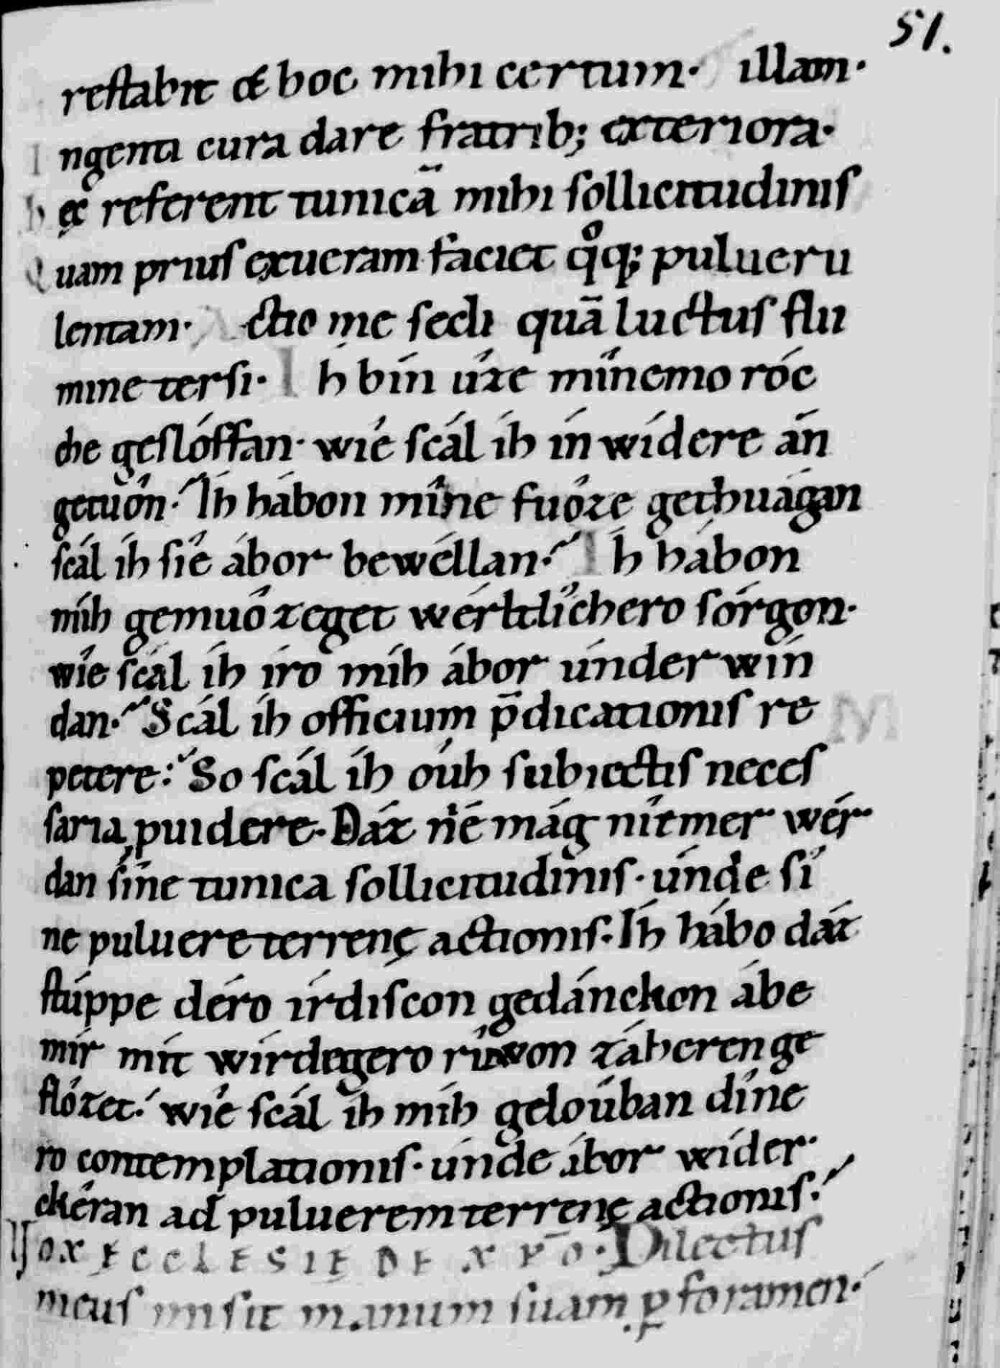 51.
reſtabit & hoc mihi certum· illam·
Ingenti cura dare fratrib; exteriora·
Hęc referent tunicā mihi ſollicitudinis
Quam prius exueram faciet qͦq; pulueru
lentam· Actio me fedi quā luctus flu
mine tersi· Ih bín ûze mînemo róc
che geslóffan· wíe scál íh ín wídere án
getûon· Ih hábon mîne fuôze gethuágan
scál íh síe ábor bewéllan· Ih hábon
míh gemuôzeget wérltlîchero sórgon·
wíe scál íh íro míh ábor únderwín
dan· Scál íh officium p̄dicationis re
petere: So scál íh oúh subiectis neces
saria puidere· Dáz níe mág níemer wér
dan sîne tunica sollicitudinis· únde sî
ne puluere terrenę actionis· Ih hábo dáz
stúppe déro írdiscon gedánckon ábe
mír mít wírdegero ríuwon záheren ge
flózet· wíe scál íh míh geloúban díne
ro contemplationis· únde ábor wíder
ckéran ad puluerem terrenę actionis·
Vox ęcclesię de xp̄o· Dilectus
meus misit manum suam ꝑ foramen·